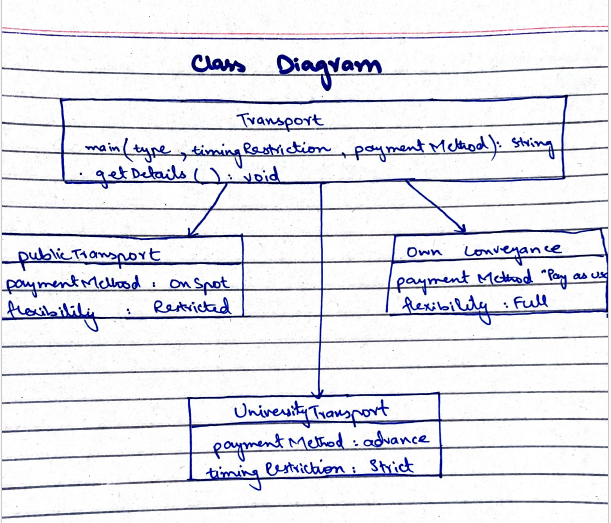 Class Diagram
Transport
main(type, timingRestriction, paymentMethod): string
. getDetails( ): void
publicTransport
paymentMethod : onSpot
flexibility : Restricted
Own Conveyance
payment Method "Pay as use
flexibility : Full
UniversityTransport
payment Method : advance
timing Restriction : Strict